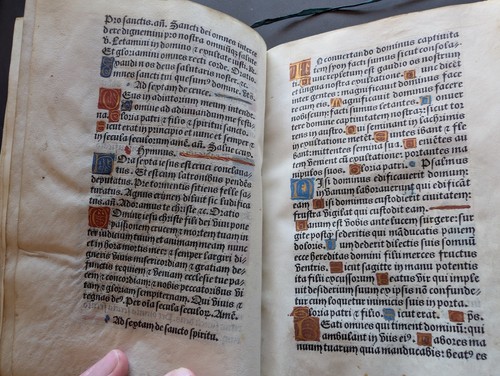 Pro sanctis. añ. Sancti dei omnes interce
dere dignemini pro nostra omniumq; salute
v. Letamini in domino ⁊ exultate iusti. R.
Et gloriamini omnes recti corde. Oratio.
nos deus noster. ⁊c.
omnes sancti tui quesum⁹ domine. vt s.
Ad sextam de cruce.
Deus in adiutorium meum intende.
Domine ad adiuuandum me festi.
Gloria patri ⁊ filio ⁊ spiritui sancto.
Sicut erat in principio et nunc et semper et
in secula seculorum amē. añ. Salue crux.
Hymnus.
Hora sexta iesus est cruci conclaua
tus. Et est cum latronibus pendēs
deputatus. Pre tormentis sitiens felle sa
turatus. Agnus crimen diluit sic ludifica
tus. añ. Adoramus te christe ⁊c. Oratio
Domine iesu christe fili dei viui pone
passionem crucem ⁊ mortem tuam in
ter iudicium tuum et animam meam nunc
et in hora mortis mee: ⁊ semper largiri di
gneris viuis misericordiam ⁊ gratiam: de
functis requiem ⁊ veniam: ecclesie tue pa
cem ⁊ concordiam: ⁊ nobis peccatoribus vi
tam ⁊ gloriam sempiternam. Qui viuis et
regnas de⁹. Per oīa secula seculor. Amē.
Ad sextam de sancto spiritu.
In conuertendo dominus captiuita
tem syon facti sumus sicut consolati.
Tunc repletum est gaudio os nostrum
et lingua nostra exultatione. Tunc dicēt
inter gentes: magnificauit dominus facere
cum eis. Magnificauit dominus facere
nobiscum: facti sumus letantes. Conuer
te domine captiuitatem nostrā: sicut torrens
in austro. Qui seminant in lachrimis
in exultatione metēt. Euntes ibant ⁊ fle
bant: mittentes semina sua. Venientes au
tem venient cū exultatione: portantes ma
nipulos suos. Gloria patri. Psalmus
Nisi dominus edificauerit domum:
in vanum laborauerunt qui edificāt
eam. Nisi dominus custodierit ciuitatem:
frustra vigilat qui custodit eam.
Vanum est vobis ante lucem surgere: sur
gite postq̄ sederitis qui māducatis panem
doloris. Cum dederit dilectis suis somnū
ecce hereditas domini filij merces fructus
ventris. Sicut sagitte in manu potentis
ita filij excussorum. Beatus vir qui imple
uit desiderium suum ex ipsis non confunde
tur cum loquetur inimicis suis in porta.
Gloria patri ⁊ filio. Sicut erat. ps.
Beati omnes qui timent dominū: qui
ambulant in vijs ei⁹. Labores ma
nuum tuarum quia manducabis: beat⁹ es